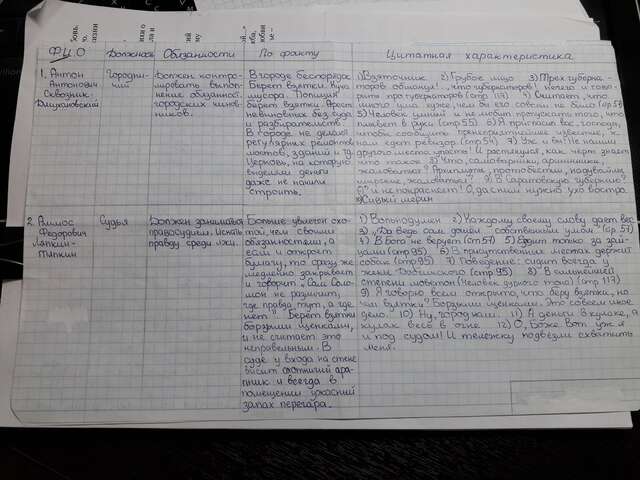 Ф.И.О Должность Обязанности По факту Цитатная характеристика
1. Антон
Антонович
Сквозник-
Дмухановский
Городни-
чий
Должен контро-
лировать выпол-
нение обязаннос-
тей городских чинов-
ников.
В городе беспорядок
Берет взятки. Куча
мусора. Полиция
берет взятки. Арест
невиновных без суда
и разбирательств.
В городе не делают
регулярных ремонтов
мостов, зданий и тд
Церковь, на которую
выделили деньги
даже не начали
строить.
1) Взяточник 2) Грубое лицо 3) Трех губерна-
торов обманул!.. что губернаторов! нечего и гово-
рить про губернаторов (стр 114) 4) Считает, что
много ума хуже, чем бы его совсем не было (стр
5) Человек умный и не любит пропускать того, что
плывет в руки (стр 55) 6) Я пригласил вас, господа,
чтобы сообщить пренеприятнейшее известие, к
нам едет ревизор (стр 54) 7) Эк и вы! Не нашли
другого места упасть! И растянулся, как черт знает
что такое 8) Что, самоварники, аршинники,
жаловаться? Архиплуты, протобестии, надувайлы
мирские, жаловаться? 9) В Саратовскую губернию!
и не покраснеет! О, да с ним нужно ухо востро
Сивый мерин
2. Аммос
Федорович
Ляпкин-
Тяпкин
Судья
Должен заниматься
правосудием. Искать
правду среди лжи.
Больше увлечен охо-
той, чем своими
обязанностями, а
если и откроет
бумагу, то сразу же
медленно закрывает
и говорит „Сам Соло-
мон не разрешит,
где правда тут, а где
нет". Берет взятки
борзыми щенками,
и не считает это
неправильным. В
суде у входа на стене
висит охотничий арап-
ник и всегда в
помещении ужасный
запах перегара.
1) Вольнодумен 2) Каждому своему слову дает вес
3) „Да ведь сам дошел - собственным умом" (стр 57)
4) В Бога не верует (стр 57) 5) Ездит только за зай-
цами (стр 95) 6) В присутственных местах держит
собак (стр 95) 7) Поведение: сидит всегда у
жены Добчинского (стр 95) 8) В сильнейшей
степени моветон (Человек дурного тона) (стр 117)
9) Я говорю всем открыто, что беру взятки, но
чем взятки? Борзыми щенками. Это совсем иное
дело." 10) Ну, город наш. 11) А деньги в кулаке, а
кулак весь в огне 12) О, Боже, вот уж я
и под судом! И тележку подвезли схватить
меня.